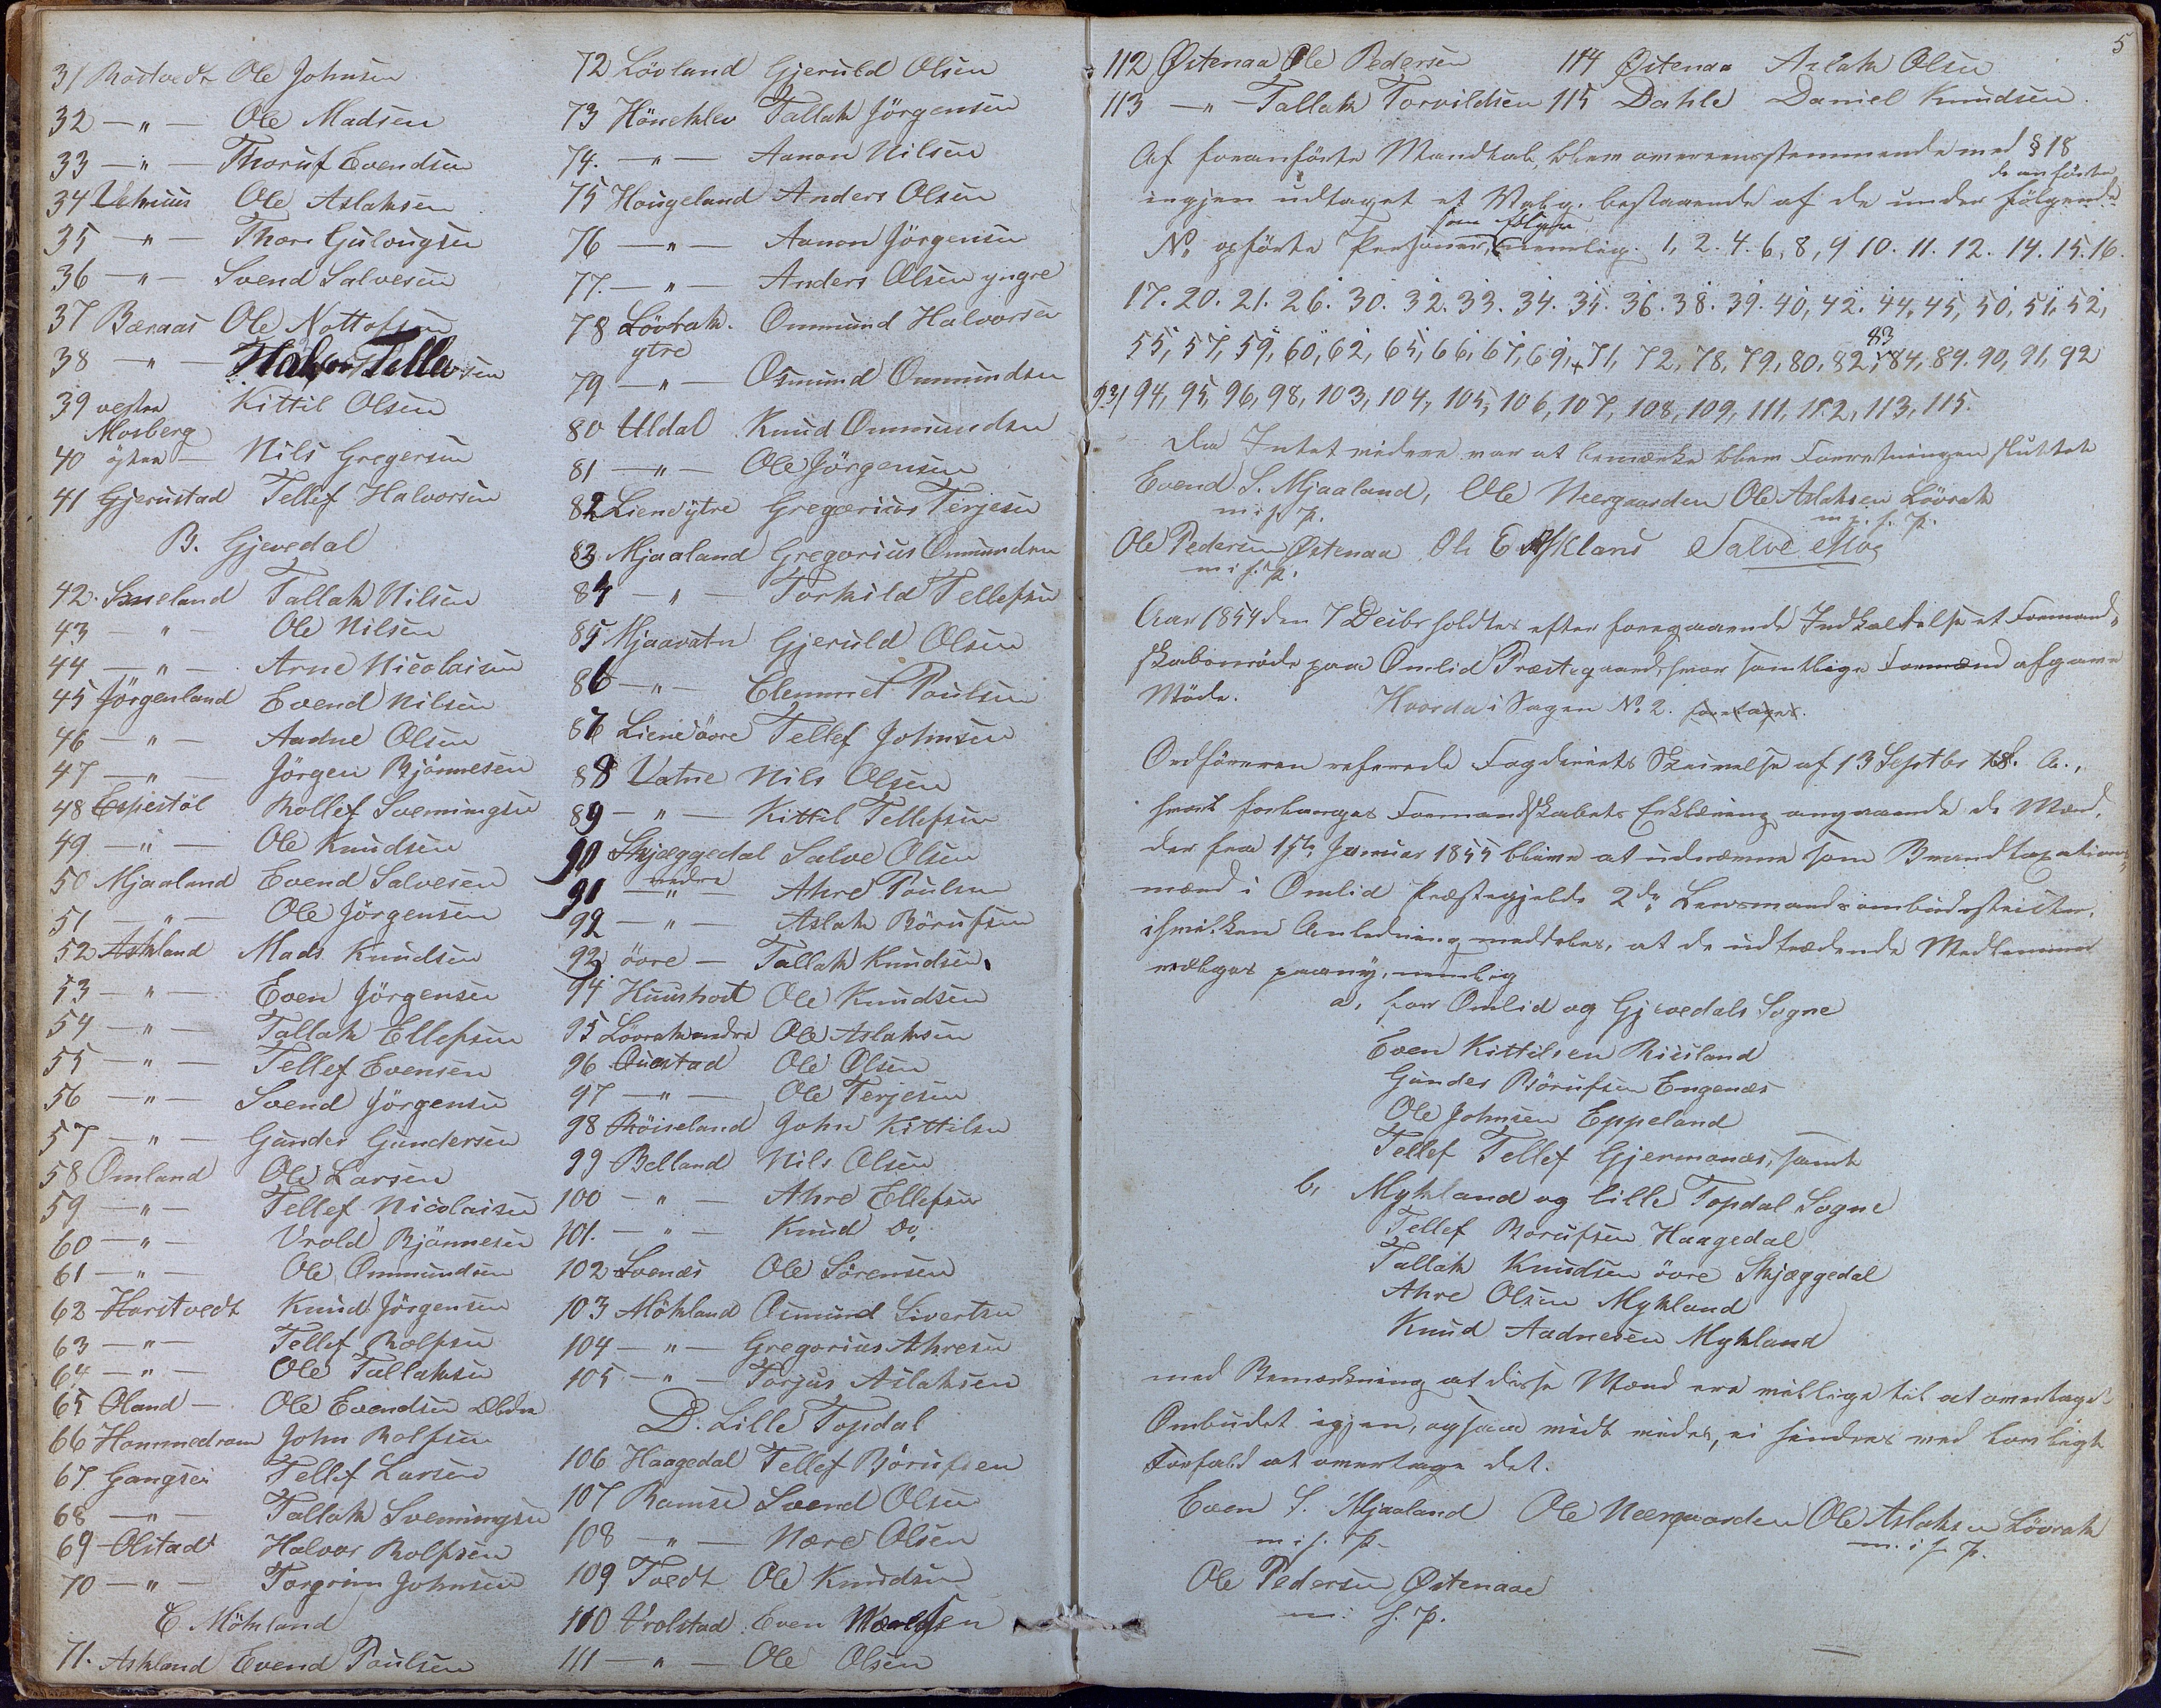 31 Rostvedt Ole Johnsen
32 — " — Ole Madsen
33 — " — Thoruf Evendsen
34 Vehuus Ole Aslaksen
35 — " — Thore Gulougsen
36 — " — Svend Salvesen
37 Baraas Ole Nottofsen
38 — " — Halvor Tellevsen
39 vestre Mosberg Kittil Olsen
40 östre — Nils Gregersen
41 Gjerustad Tellef Halvorsen
B. Gjevedal
42. Saueland Tallak Nilsen
43 — " — Ole Nilsen
44 — " — Arne Nicolaisen
45 Jörgenland Evend Nilsen
46 — " — Aadne Olsen
47 — " — Jörgen Bjönnesen
48 Espestöl Rollef Svenningsen
49 — " — Ole Knudsen
50 Mjaaland Evend Salvesen
51 — " — Ole Jörgensen
52 Askland Mads Knudsen
53 — " — Even Jörgensen
54 — " — Tallak Ellefsen
55 — " — Tellef Evensen
56 — " — Svend Jörgensen
57 — " — Gunder Gundersen
58 Omland Ole Larsen
59 — " — Tellef Nicolaisen
60 — " — Vrold Bjönnesen
61 — " — Ole Ommundsen
62 Harstvedt Knud Jörgensen
63 — " — Tellef Rolfsen
64 — " — Ole Tallaksen
65 Oland — Ole Evendsen Ældre
66 Hommedram John Rolfsen
67. Gangsei Tellef Larsen
68 — " — Tallak Svenningsen
69 Olstadt Halvor Rolfsen
70 — " — Torgrim Johnsen
C. Mökland
71. Askland Evend Poulsen
72 Lövland Gjeruld Olsen
73 Höneklev Tallak Jörgensen
74. — " — Aanon Nilsen
75 Haugeland Anders Olsen
76 — " — Aanon Jörgensen
77. — " — Anders Olsen yngre
78 Lövrak ytre Ommund Halvorsen
79 — " — Osmund Ommundsen
80 Uldal Knud Ommundsen
81 — " — Ole Jörgensen
82 Liene ytre Gregorius Terjesen
83 Mjaaland Gregorius Ommundsen
84 — " — Torkild Tellefsen
85 Mjaavatn Gjeruld Olsen
86 — " — Clemmet Poulsen
87 Liene övre Tellef Johnsen
88 Vatne Nils Olsen
89 — " — Kittil Tellefsen
90 Skjæggedal nedre Salve Olsen
91 — " — Ahre Poulsen
92 — " — Aslak Börufsen
93 övre — Tallak Knudsen
94 Huushovt Ole Knudsen
95 Lövrak nedre Ole Aslaksen
96 Ouestad Ole Olsen
97 — " — Ole Terjesen
98 Röiseland John Kittilsen
99 Belland Nils Olsen
100 — " — Ahre Ellefsen
101. — " — Knud Do.
102 Svenæs Ole Sörensen
103 Mökland Osmund Sivertsen
104 — " — Gregorius Ahresen
105 — " — Torjus Aslaksen
D. Lille Topdal
106 Haagedal Tellef Börufsen
107 Ramse Svend Olsen
108 — " — Nære Olsen
109 Tvedt Ole Knudsen
110 Vrolstad Even
111 — " — Ole Olsen
5
112 Östenaa Ole Pedersen 114 Östenaa Aslak Olsen
113 — " — Tallak Torvildsen 115 Dahle Daniel Knudsen
Af foranförte Mandtal, blev overeensstemmende med § 18
de anförte
igjen udtaget et Valg. bestaaende af de under fölgende
som fölger
No. opförte Personer, nemlig. 1, 2. 4. 6, 8, 9 10. 11. 12. 14. 15. 16.
17. 20. 21. 26. 30. 32. 33. 34. 35. 36. 38. 39. 40, 42. 44, 45, 50, 51. 52,
83
55, 57, 59, 60, 62, 65, 66, 67, 69, 71, 72, 78, 79, 80, 82, 84, 89. 90, 91, 92
93, 94, 95, 96, 98, 103, 104, 105, 106, 107, 108, 109, 111, 112, 113, 115.
Da Intet videre var at bemærke blev Forretningen sluttet
Evend S. Mjaaland, Ole Neergaarden Ole Aslaksen Lövrak
m. i. f. p. m. i. f. p.
Ole Pedersen Östenaa Ole E Askland Salve Moe
m. i. f. p.
Aar 1854 den 7 Decbr holdtes efter foregaaende Indkaldelse et Formand-
skabsmöde paa Omlid Præstegaard, hvor samtlige Formænd afgave
Möde. Hvorda i Sagen No. 2. foretages.
Ordföreren refererede Fogderiets Skrivelse af 13 Septbr d. A.,
hvori forlanges Formandskabets Erklæring angaaende de Mænd,
der fra 1ste Januar 1855 blive at udnævne som Brandtaxations-
mænd i Omlid Præstegjelds 2de Lensmandsombudsdistrikter,
i hvilken Anledning meddeles, at de udtrædende Medlemmer
vælges paany, nemlig
a, for Omlid og Gjevedals Sogne
Even Kittilsen Riisland
Gunder Börufsen Engenæs
Ole Johnsen Eppeland
Tellef Tellef Gjermonæs, samt
b, Mykland og lille Topdal Sogne
Tellef Börufsen Haagedal
Tallak Knudsen övre Skjæggedal
Ahre Olsen Mykland
Knud Aadnesen Mykland
med Bemærkning at disse Mænd ere villige til at overtage
Ombudet igjen, og saavidt vides, ei hindres ved lovligt
Forfald at overtage det.
Even S. Mjaaland Ole Neergaarden Ole Aslaksen Lövrak
m. i. f. p. m. i. f. p.
Ole Pedersen Östenaae
m. i. f. p.